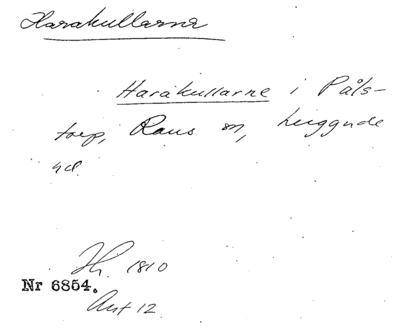 Harakullarna
Harakullarne i Påls-
torp, Raus sn, Luggude
hd.
Jh. 1810
Nr 6854.
Ant 12